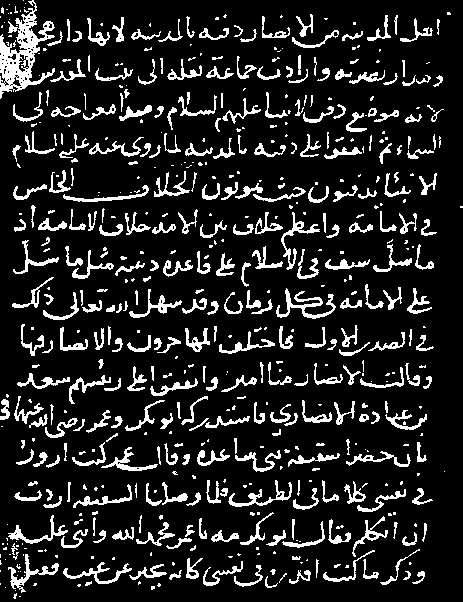 اهل المدينه من الانصار دفنه بالمدينه لانها دار هجرته
ومدار نصرته وارادت جماعة نقله الى بيت المقدس
لانه موضع دفن الانبيا عليهم السلام ومنه معراجه الى
السماء ثم اتفقوا على دفنه بالمدينه لما روي عنه عليه السلام
الانبيا يدفنون حيث يموتون الخلاف الخامس
في الامامة واعظم خلاف بين الامه خلاف الامامة اذ
ما سُلَّ سيف في الاسلام على قاعدة دينية مثل ما سُلَّ
على الامامة في كل زمان وقد سهل الله تعالى ذلك
في الصدر الاول فاختلف المهاجرون والانصار فيها
وقالت الانصار منا امير واتفقوا على رئيسهم سعد
بن عبادة الانصاري فاستدركه ابو بكر وعمر رضي الله عنهما في
بان حضرا سقيفة بني ساعدة وقال عمر كنت ازور
في نفسي كلاما في الطريق فلما وصلنا السقيفه اردت
ان اتكلم فقال ابو بكر مه يا عمر فحمد الله واثنى عليه
وذكر ما كنت اقدره في نفسي كانه يخبر عن غيب فقبل